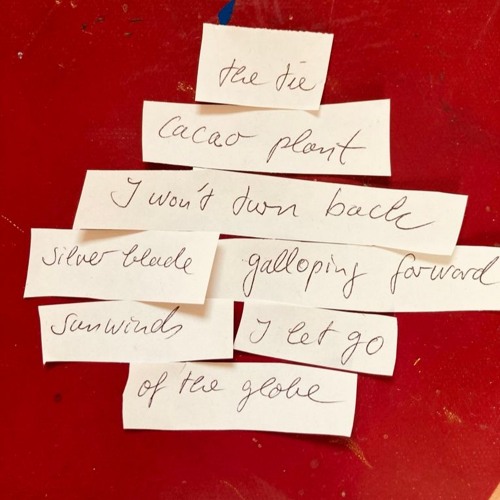 the tie
cacao plant
I won't turn back
silver blade galloping forward
sunwinds I let go
of the globe